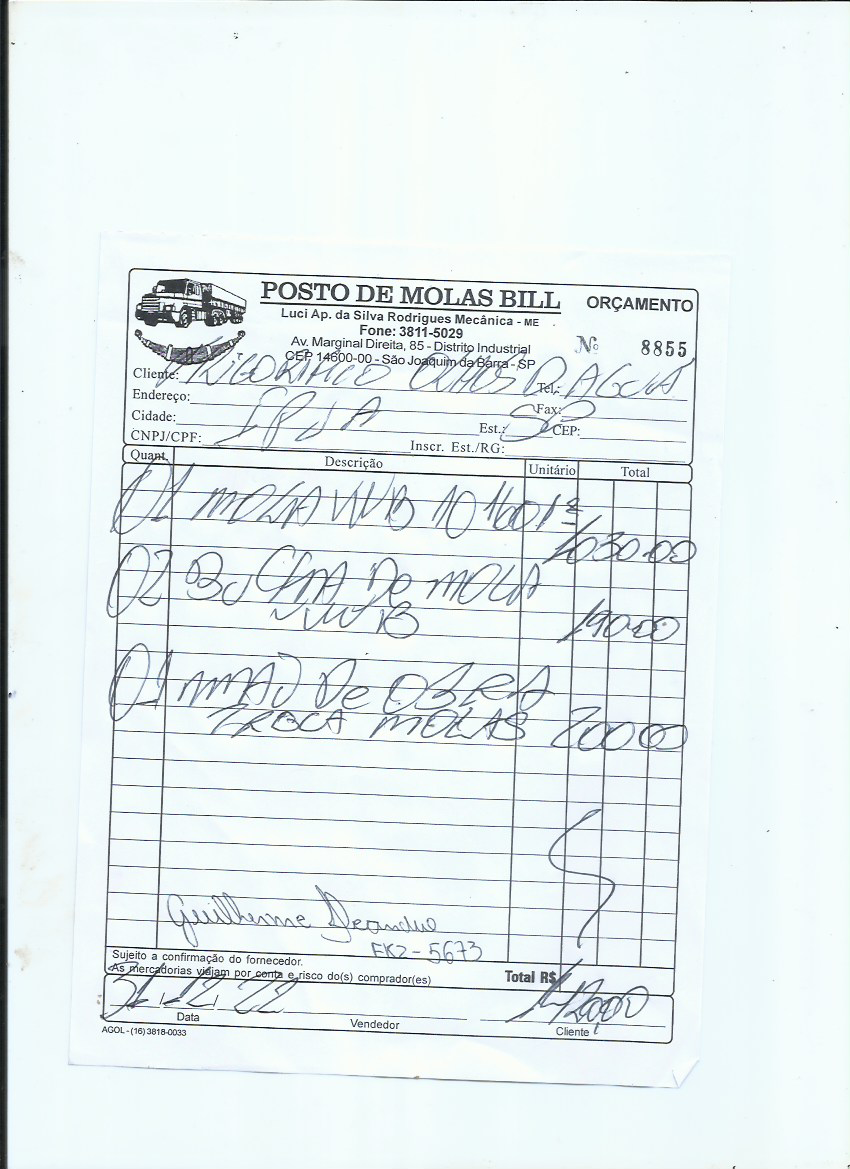 POSTO DE MOLAS BILL
ORÇAMENTO
Luci Ap. da Silva Rodrigues Mecânica - ME
Fone: 3811-5029
Av. Marginal Direita, 85 - Distrito Industrial
CEP 14600-00 - São Joaquim da Barra - SP
Nº 8855
Cliente: FRIGORIFICO OLHOS D AGUA Tel.:
Endereço: Fax:
Cidade: IPUA Est.: SP CEP:
CNPJ/CPF: Inscr. Est./RG:
Quant. Descrição Unitário Total
01 MOLA VW 1ª
1030.00
02 BUCHA DO MOLA
190.00
01 MAO De OBRA
TROCA MOLAS 200.00
Guilherme
5673
Sujeito a confirmação do fornecedor.
As mercadorias viajam por conta e risco do(s) comprador(es)
Total R$ 1420,00
31.12.22
Data Vendedor Cliente
AGOL - (16) 3818-0033